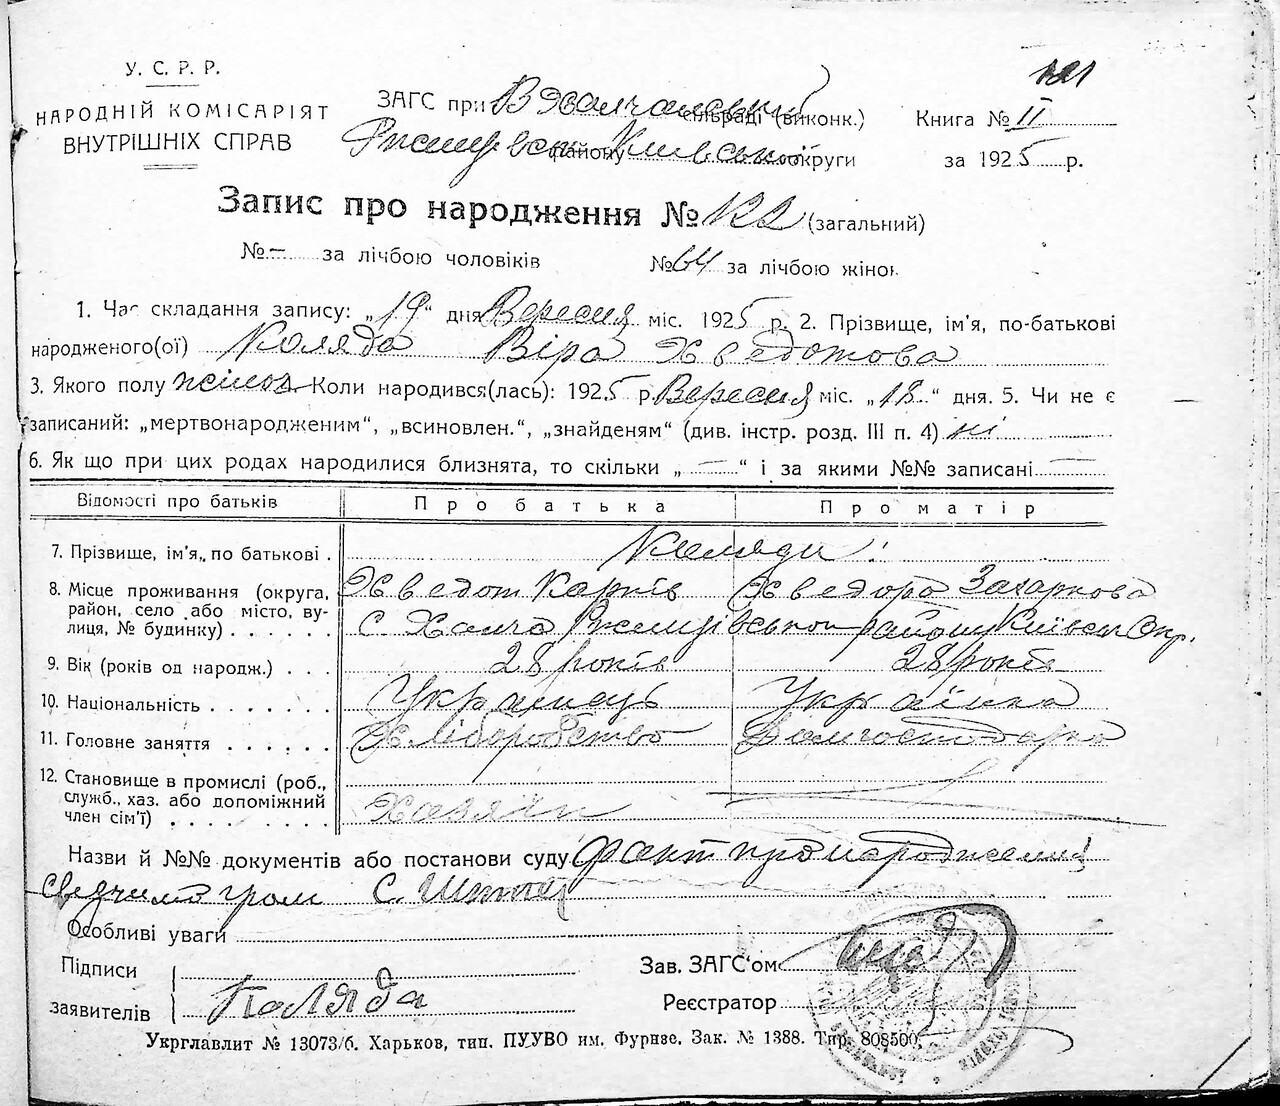 У. С. Р. Р.
НАРОДНІЙ КОМІСАРІЯТ
ВНУТРІШНІХ СПРАВ
ЗАГС при сільраді (виконк.)
району Київської округи
Книга № II
за 1925 р.
Запис про народження № (загальний)
№ — за лічбою чоловіків № 64 за лічбою жінок
1. Час складання запису: „19“ дня Вересня міс. 1925 р. 2. Прізвище, ім'я, по-батькові
народженого(ої) Коляда Віра Хведотова
3. Якого полу жіноч. Коли народився(лась): 1925 р. Вересня міс. „18“ дня. 5. Чи не є
записаний: „мертвонародженим“, „всиновлен.“, „знайденям“ (див. інстр. розд. III п. 4) ні
6. Як що при цих родах народилися близнята, то скільки „—“ і за якими №№ записані —
Відомості про батьків Про батька Про матір
7. Прізвище, ім'я, по батькові . Коляди
8. Місце проживання (округа, Хведот Карпів Хведора Захаркова
район, село або місто, ву-
лиця, № будинку) . . . . . . с. Халча Ржищівського району Київськ Окр.
9. Вік (років од народж.) . . . 28 років 28 років
10. Національність . . . . . . . Українець Українка
11. Головне заняття . . . . . . Хліборобство Домгосподарка
12. Становище в промислі (роб.,
служб., хаз. або допоміжний
член сім'ї) . . . . . . . . . Хазяін
Назви й №№ документів або постанови суду факт про народження
свідчить гром. С.
Особливі уваги
Підписи
заявителів Коляда
Зав. ЗАГС'ом
Реєстратор
Укрглавлит № 13073/б. Харьков, тип. ПУУВО им. Фурнзе. Зак. № 1388. Тир. 808500.